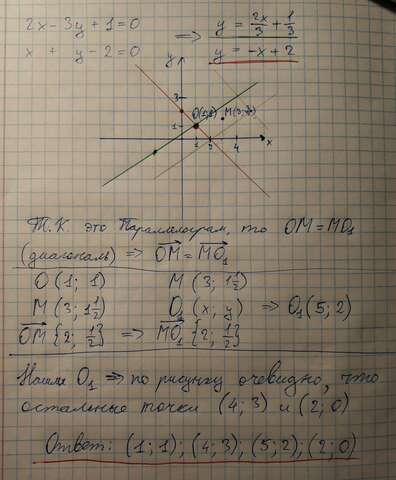 2x - 3y + 1 = 0 ⟹ y = 2x/3 + 1/3
x + y - 2 = 0 y = -x + 2
y
3
O(1;1) M(3;3/2)
1
1 2 4 x
Т.К. это Параллелограм, то OM = MO₁
(диагональ) ⟹ OM = MO₁
O (1; 1) M (3; 1½)
M (3; 1½) O₁ (x; y) ⟹ O₁ (5; 2)
OM {2; ½} ⟹ MO₁ {2; ½}
Нашли O₁ ⟹ по рисунку очевидно, что
остальные точки (4; 3) и (2; 0)
Ответ: (1; 1); (4; 3); (5; 2); (2; 0)